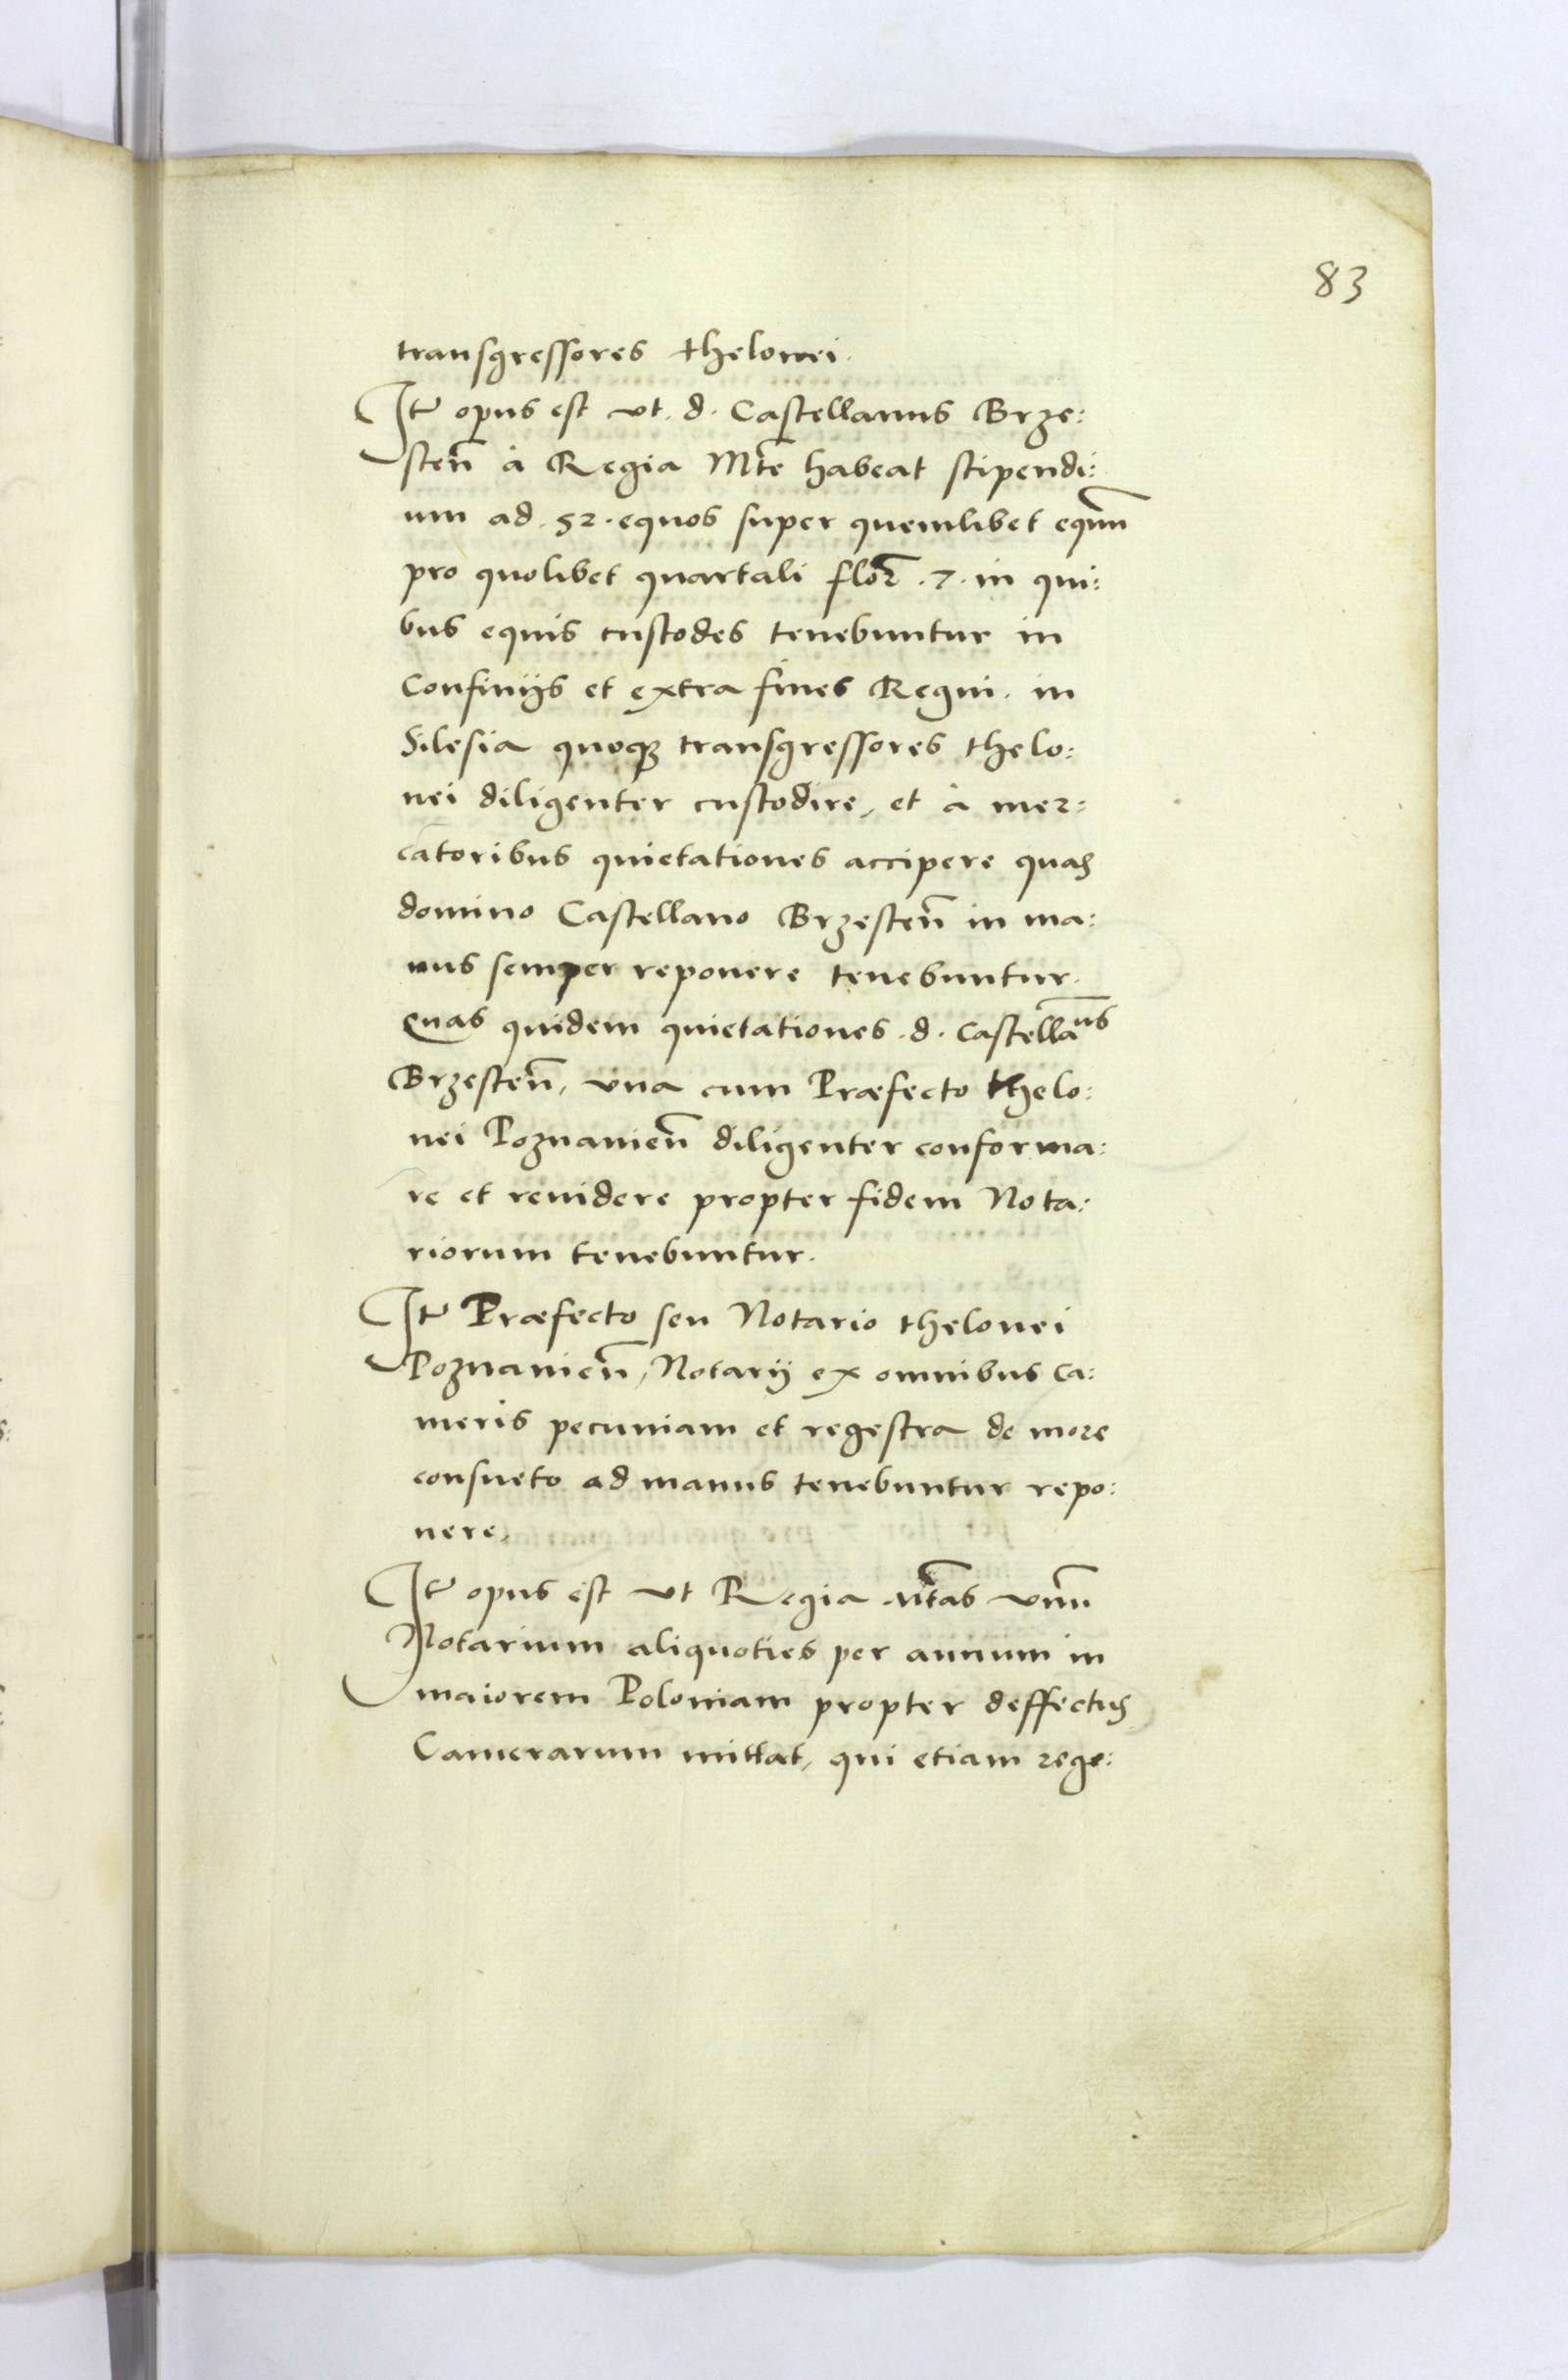 83
transgressores thelonei.
It̃ opus est vt. d. Castellanus Brze:
sten̄ à Regia Mt̃e habeat stipendi:
um ad. 52. equos super quemlibet equm̄
pro quolibet quartali flor̃. 7. in qui:
bus equis custodes tenebuntur in
Confinijs et extra fines Regni. in
Silesia quoqꝫ transgressores thelo:
nei diligenter custodire, et à mer:
catoribus quietationes accipere quas
domino Castellano Brzesten̄ in ma:
nus semper reponere tenebuntur.
Quas quidem quietationes. d. Castellan̄us
Brzesten̄, vna cum Præfecto thelo:
nei Poznanien̄ diligenter conforma:
re et reuidere propter fidem Nota:
riorum tenebuntur.
It̃ Præfecto seu Notario thelonei
Poznanien̄, Notarij ex omnibus Ca:
meris pecuniam et regestra de more
consueto ad manus tenebuntur repo:
nere,
It̃ opus est vt Regia Mt̃as vnū
Notarium aliquoties per annum in
maiorem Poloniam propter deffectus
Camerarum mittat, qui etiam rege: